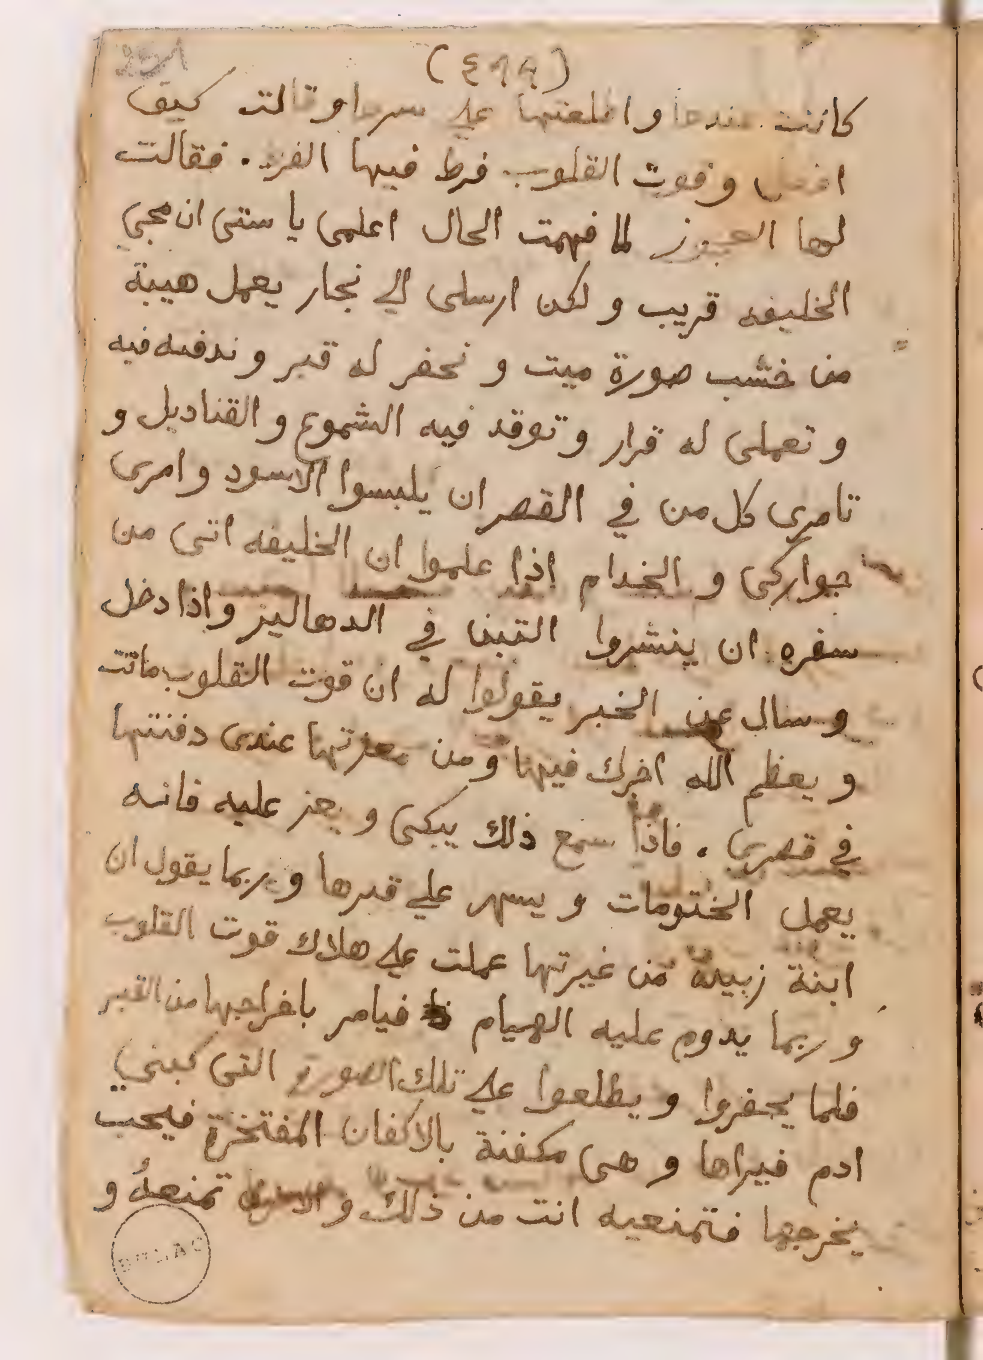 (٤٩٩)
كانت عندها واطلعتها علي سرها وقالت كيف
افعل وقوت القلوب فرط فيها الفرط . فقالت
لها العجوز لما فهمت الحال اعلمي يا ستي ان مجي
الخليفه قريب ولكن ارسلي الي نجار يعمل هيبة
من خشب صورة ميت و نحفر له قبر و ندفنه فيه
و تعملي له قرار و توقد فيه الشموع و القناديل و
تامري كل من في القصر ان يلبسوا الاسود و امري
جواركي و الخدام اذا علموا ان الخليفه اتى من
سفره ان ينشروا التبن في الدهاليز واذا دخل
و سال عن الخبر يقولوا له ان قوت القلوب ماتت
و يعظم الله اجرك فيها و من معزتها عندى دفنتها
في قصري . فاذا سمع ذلك يبكى و يعز عليه فانه
يعمل الختومات و يسهر علي قبرها و ربما يقول ان
ابنة زبيدة من غيرتها عملت علي هلاك قوت القلوب
و ربما يدوم عليه الهيام فيامر باخراجها من القبر
فلما يحفروا و يطلعوا علي تلك الصورة التى كبني
ادم فيراها و هى مكفنة بالاكفان المفتخرة فيحب
يخرجها فتمنعيه انت من ذلك و تمنعهُ و
BULAC